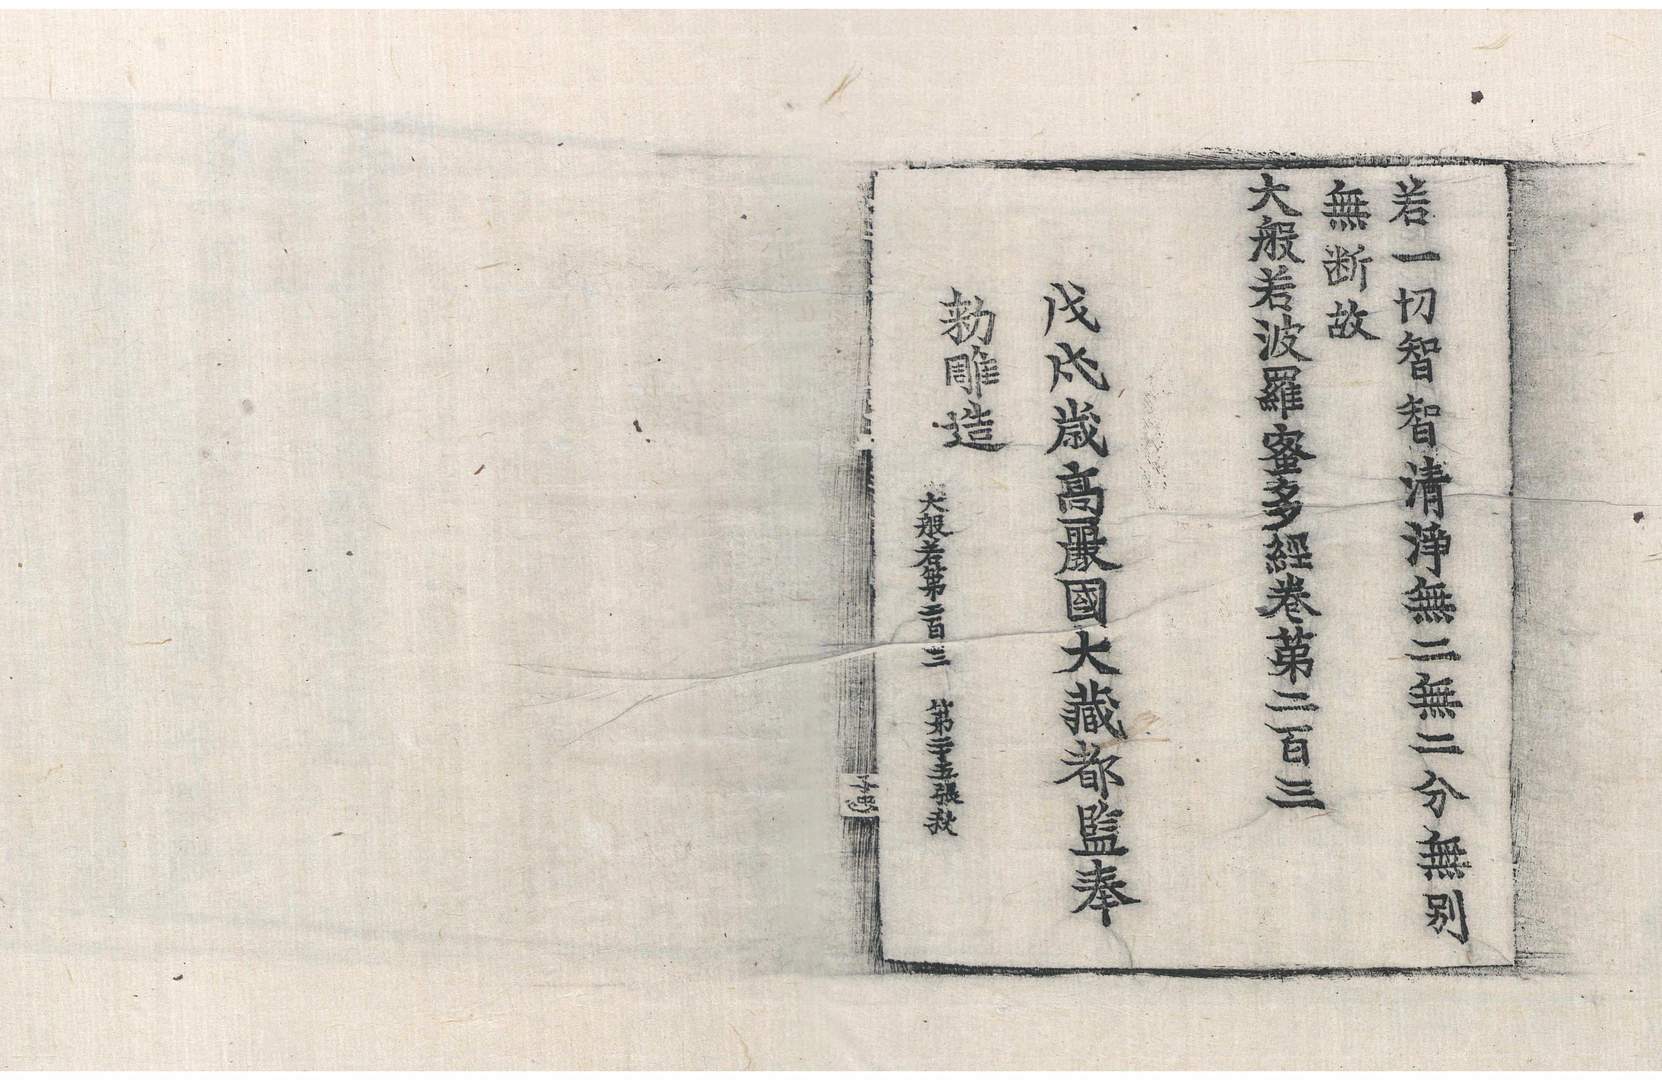 若一切智智清淨無二無二分無别
無断故
大般若波羅蜜多經卷第二百三
戊戌歲高麗國大藏都監奉
勅雕造
大般若第二百三 第二十五張 秋